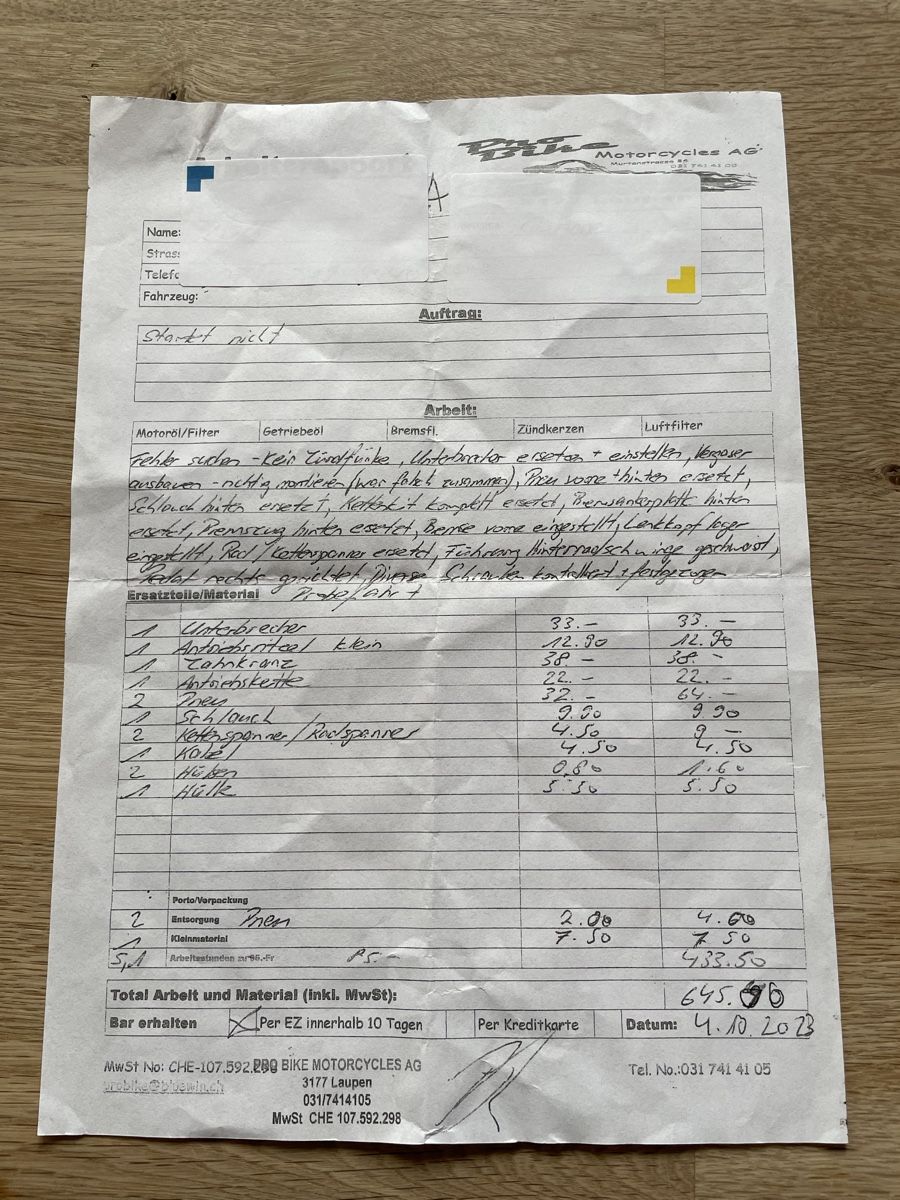 Pro Bike Motorcycles AG
Murtenstrasse
031 741 41 00
A
Name:
Strass
Telefo
Fahrzeug:
Auftrag:
Startet nicht
Arbeit:
Motoröl/Filter Getriebeöl Bremsfl. Zündkerzen Luftfilter
Fehler suchen - Kein Zündfunke, Unterbrecher ersetzen + einstellen, Vergaser
ausbauen - richtig montieren (war falsch zusammen), Pneu vorne + hinten ersetzt,
Schlauch hinten ersetzt, Kettenkit komplett ersetzt, Bremsankerplatte hinten
ersetzt, Bremszug hinten ersetzt, Bremse vorne eingestellt, Lenkkopf lager
eingestellt, Rad/Kettenspanner ersetzt, Führung Hinterradschwinge geschweisst,
Pedal rechts gerichtet, Diverse Schrauben kontrolliert + festgezogen
Ersatzteile/Material Probefahrt
1 Unterbrecher 33.– 33.–
1 Antriebsritzel klein 12.90 12.90
1 Zahnkranz 38.– 38.–
1 Antriebskette 22.– 22.–
2 Pneu 32.– 64.–
1 Schlauch 9.90 9.90
2 Kettenspanner/Radspanner 4.50 9 –
1 Kabel 4.50 4.50
2 Hülsen 0,80 1.60
1 Hülle 5.50 5.50
Porto/Verpackung
2 Entsorgung Pneu 2.00 4.00
1 Kleinmaterial 7.50 7 50
5,1 Arbeitsstunden zu .-Fr 85.– 433.50
Total Arbeit und Material (inkl. MwSt): 645.90
Bar erhalten X Per EZ innerhalb 10 Tagen Per Kreditkarte Datum: 4.10.2023
MwSt No: CHE-107.592. PRO BIKE MOTORCYCLES AG Tel. No.:031 741 41 05
probike@bluewin.ch 3177 Laupen
031/7414105
MwSt CHE 107.592.298